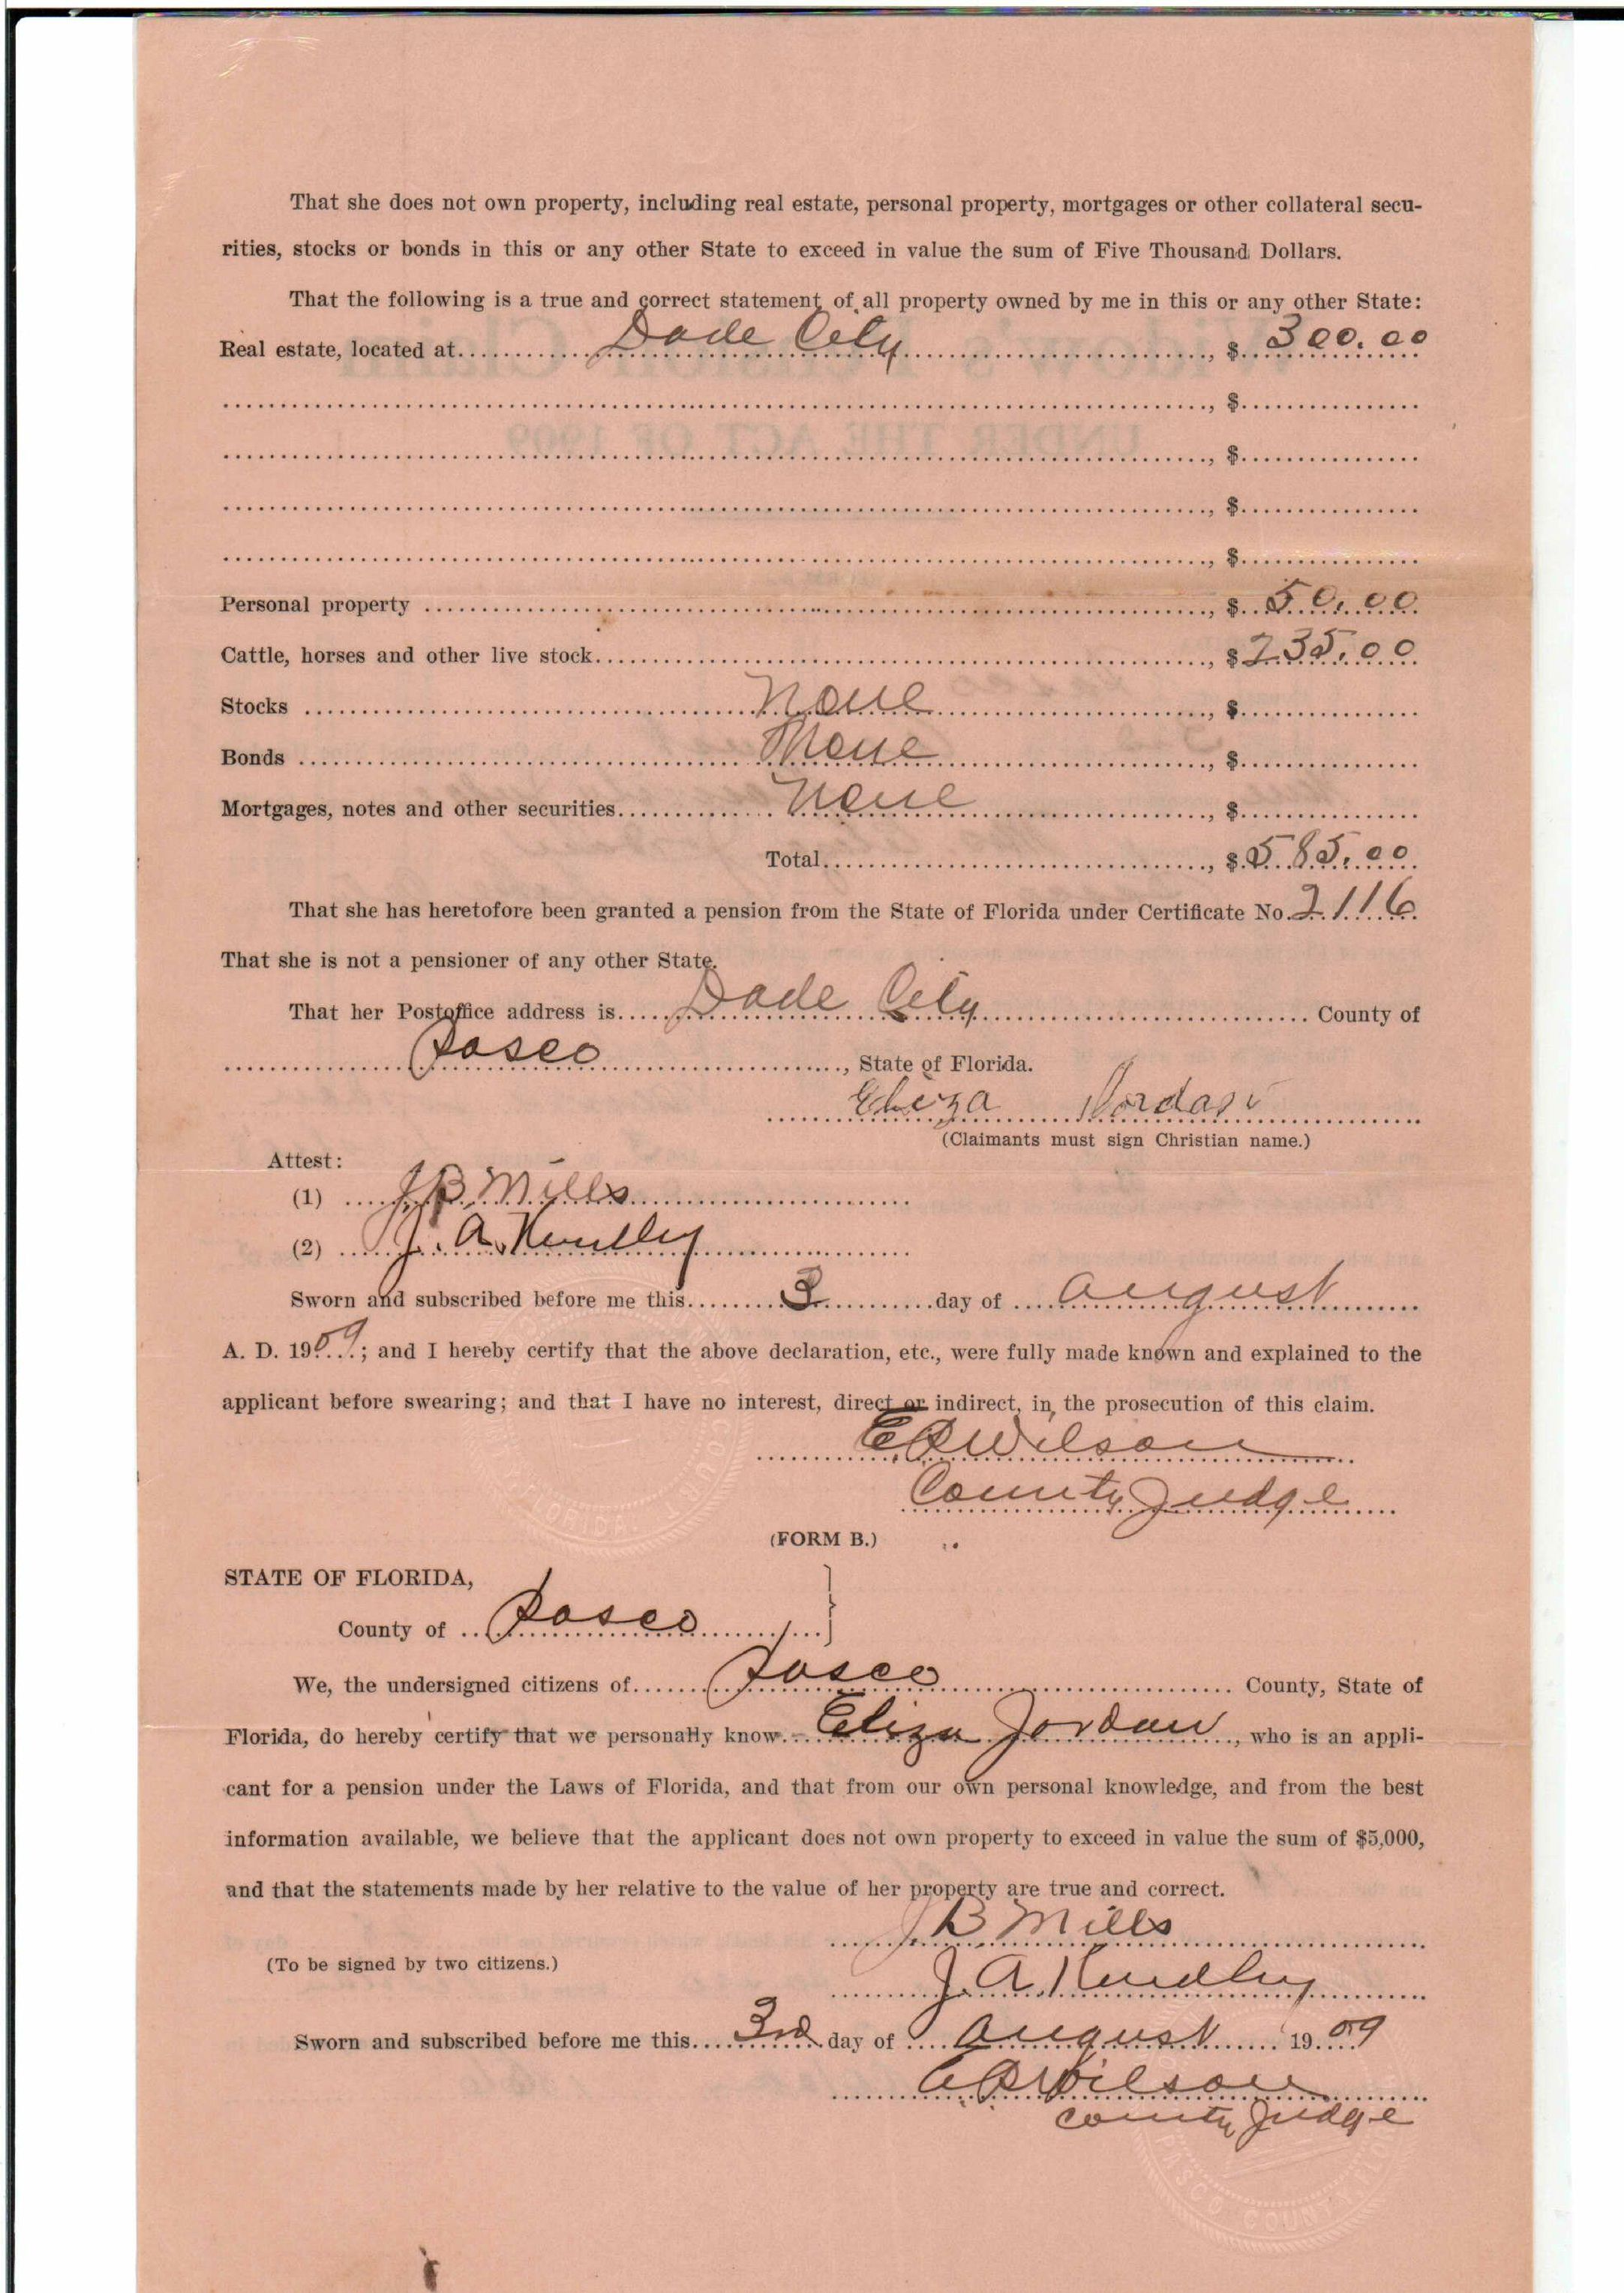 That she does not own property, including real estate, personal property, mortgages or other collateral secu-
rities, stocks or bonds in this or any other State to exceed in value the sum of Five Thousand Dollars.
That the following is a true and correct statement of all property owned by me in this or any other State:
Real estate, located at Dade City, $ 300.00
, $
, $
, $
, $
Personal property, $ 50.00
Cattle, horses and other live stock, $ 235.00
Stocks None, $
Bonds None, $
Mortgages, notes and other securities None, $
Total, $ 585.00
That she has heretofore been granted a pension from the State of Florida under Certificate No. 2116
That she is not a pensioner of any other State.
That her Postoffice address is Dade City County of
Pasco, State of Florida.
Eliza Jordan
(Claimants must sign Christian name.)
Attest:
(1) J B Mills
(2) J. A.
Sworn and subscribed before me this 3 day of August
A. D. 1909; and I hereby certify that the above declaration, etc., were fully made known and explained to the
applicant before swearing; and that I have no interest, direct or indirect, in the prosecution of this claim.
Wilson
County Judge
(FORM B.)
STATE OF FLORIDA,
County of Pasco
We, the undersigned citizens of Pasco County, State of
Florida, do hereby certify that we personally know Eliza Jordan, who is an appli-
cant for a pension under the Laws of Florida, and that from our own personal knowledge, and from the best
information available, we believe that the applicant does not own property to exceed in value the sum of $5,000,
and that the statements made by her relative to the value of her property are true and correct.
J B Mills
(To be signed by two citizens.)
J. A.
Sworn and subscribed before me this 3rd day of August 1909
Wilson
County Judge
PASCO COUNTY, FLORIDA